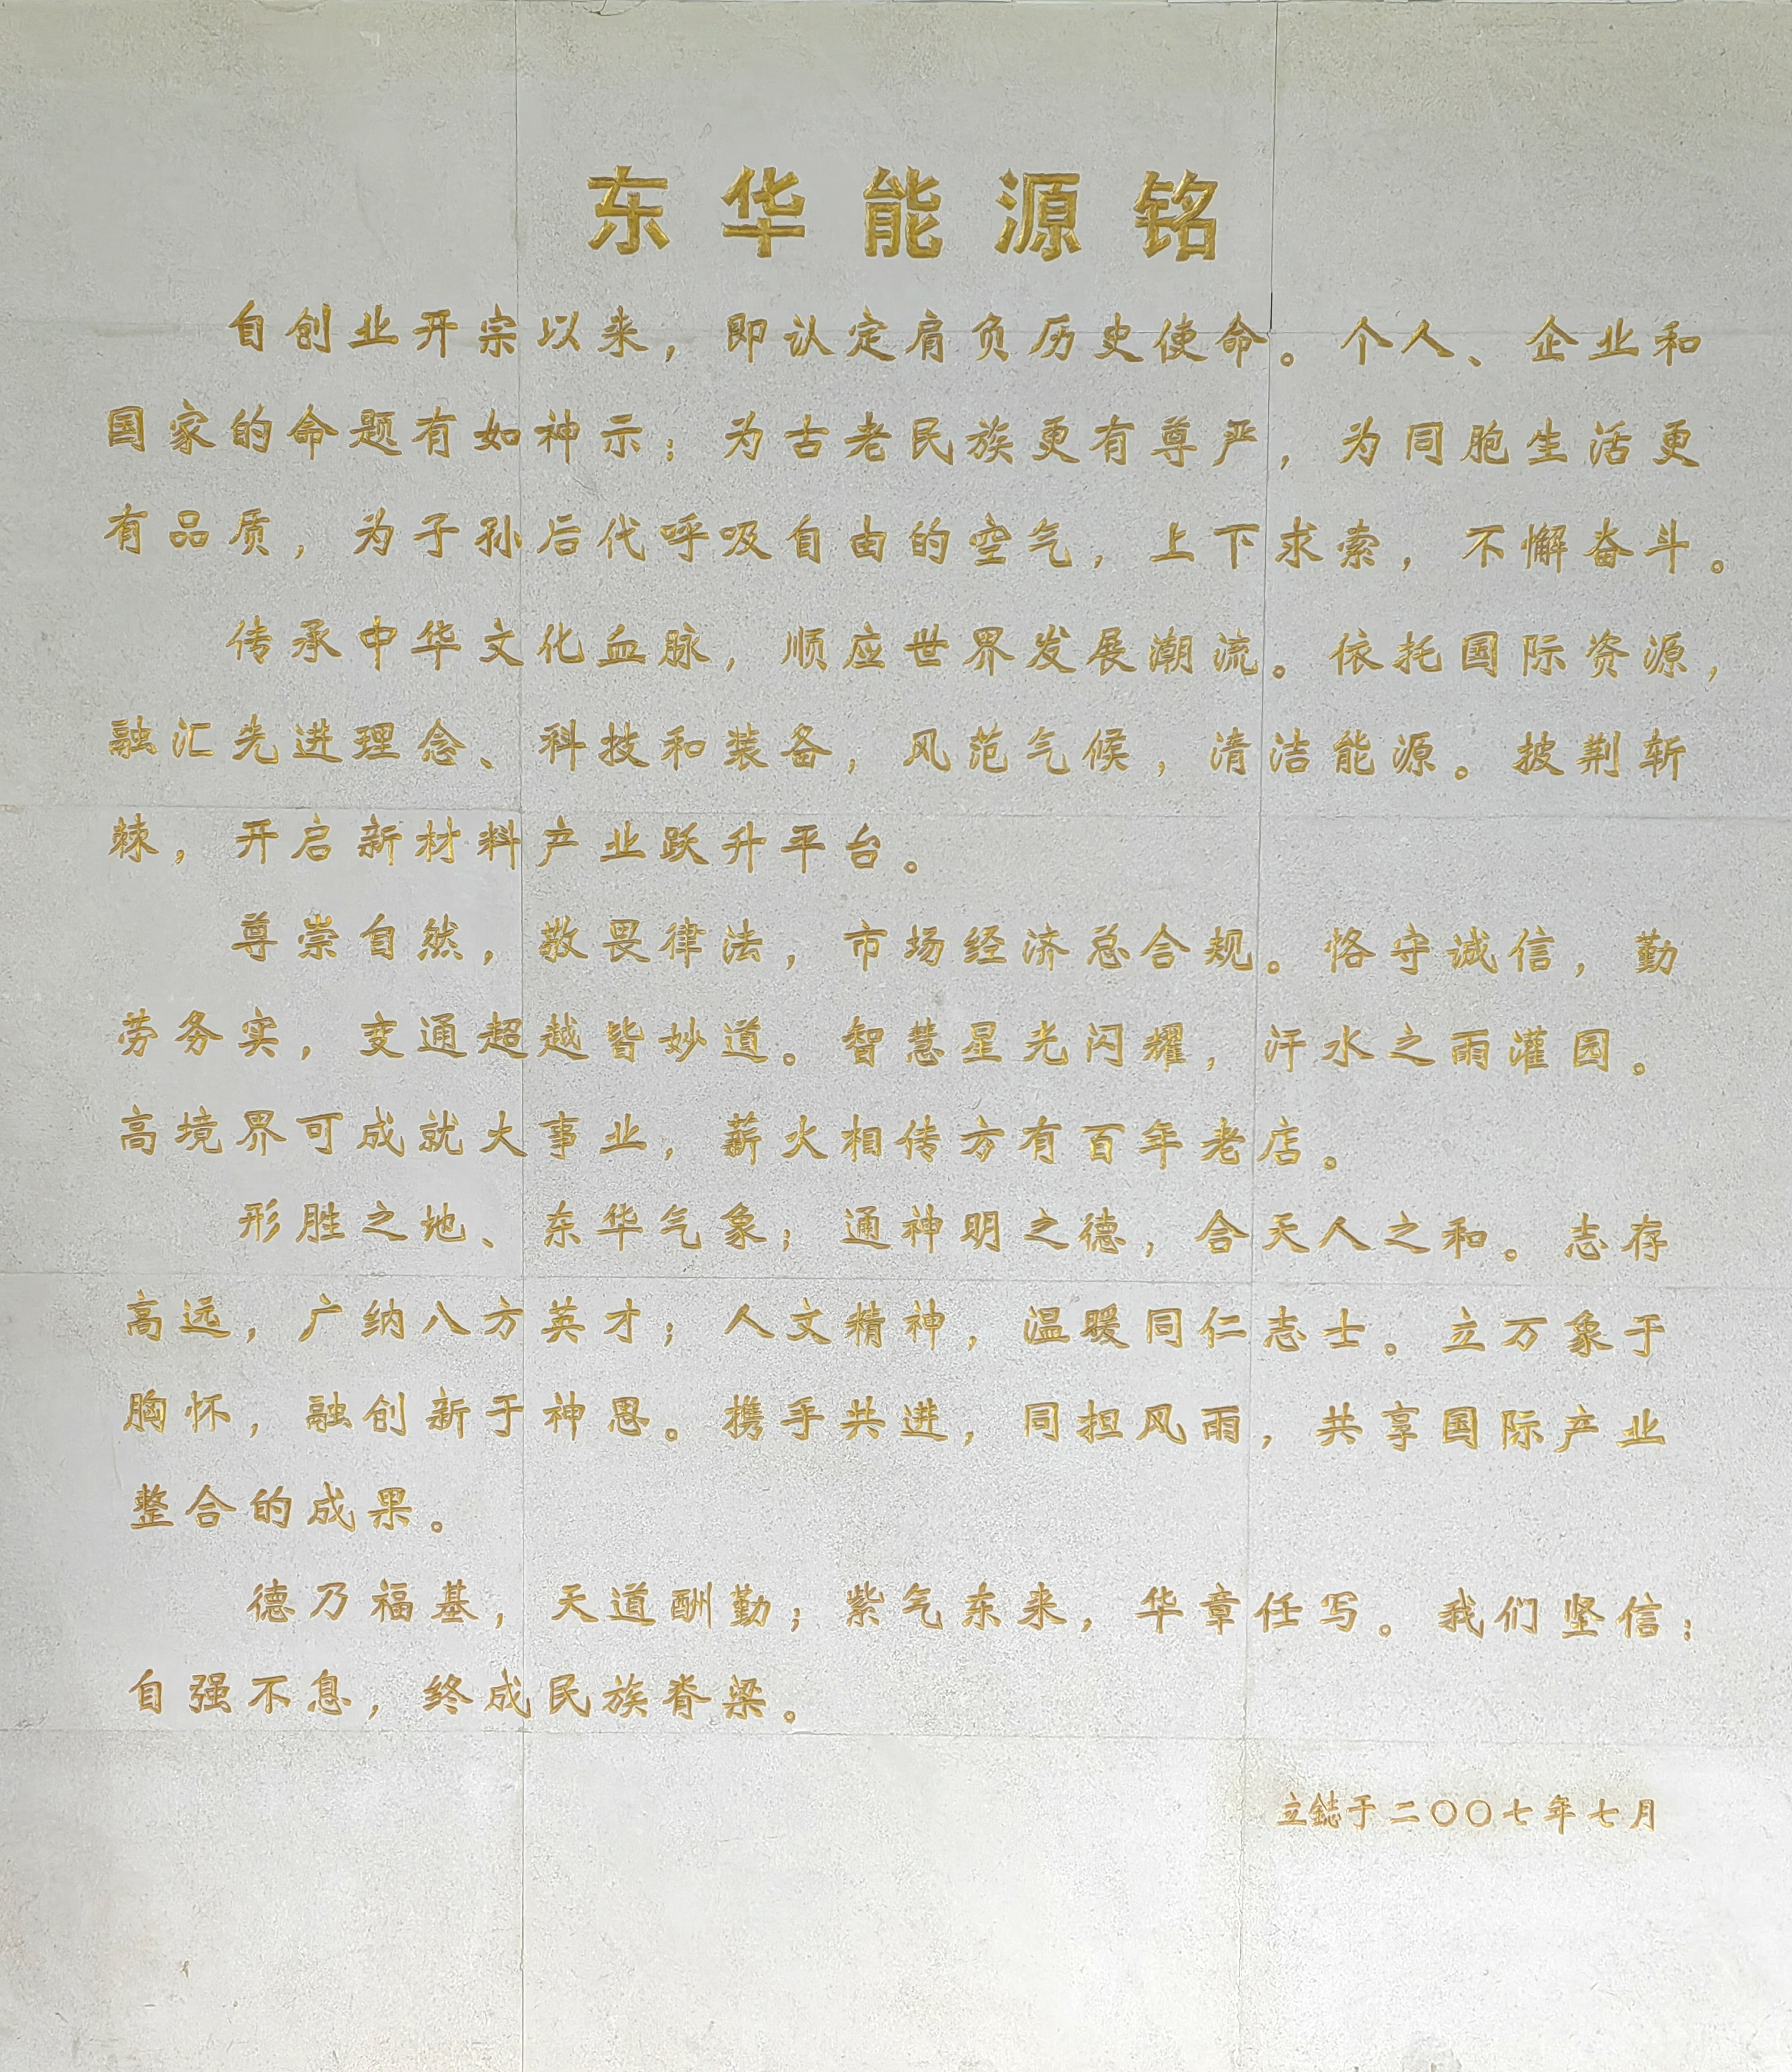 东华能源铭
自创业开宗以来，即认定肩负历史使命。个人、企业和
国家的命题有如神示；为古老民族更有尊严，为同胞生活更
有品质，为子孙后代呼吸自由的空气，上下求索，不懈奋斗。
传承中华文化血脉，顺应世界发展潮流。依托国际资源，
融汇先进理念、科技和装备，风范气候，清洁能源。披荆斩
棘，开启新材料产业跃升平台。
尊崇自然，敬畏律法，市场经济总合规。恪守诚信，勤
劳务实，变通超越皆妙道。智慧星光闪耀，汗水之雨灌园。
高境界可成就大事业，薪火相传方有百年老店。
形胜之地、东华气象；通神明之德，合天人之和。志存
高远，广纳八方英才；人文精神，温暖同仁志士。立万象于
胸怀，融创新于神思。携手共进，同担风雨，共享国际产业
整合的成果。
德乃福基，天道酬勤；紫气东来，华章任写。我们坚信：
自强不息，终成民族脊梁。
立鋕于二〇〇七年七月